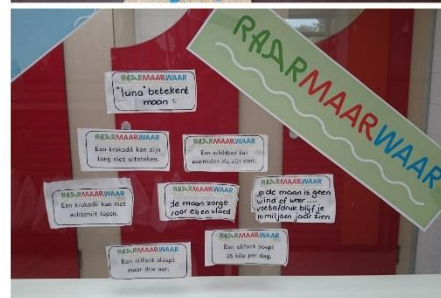 RAARMAARWAAR
RAARMAARWAAR
"luna" betekent
maan !
RAARMAARWAAR
Een krokodil kan zijn
tong niet uitsteken.
RAARMAARWAAR
Een schildpad kan
ademhalen via zijn kont.
RAARMAARWAAR
Een krokodil kan niet
achteruit lopen.
RAARMAARWAAR
de maan zorgt
voor eb en vloed
RAARMAARWAAR
op de maan is geen
wind of weer....
voetafdruk blijf je
10 miljoen jaar zien
RAARMAARWAAR
Een olifant slaapt
maar drie uur.
RAARMAARWAAR
Een olifant poept
25 kilo per dag.